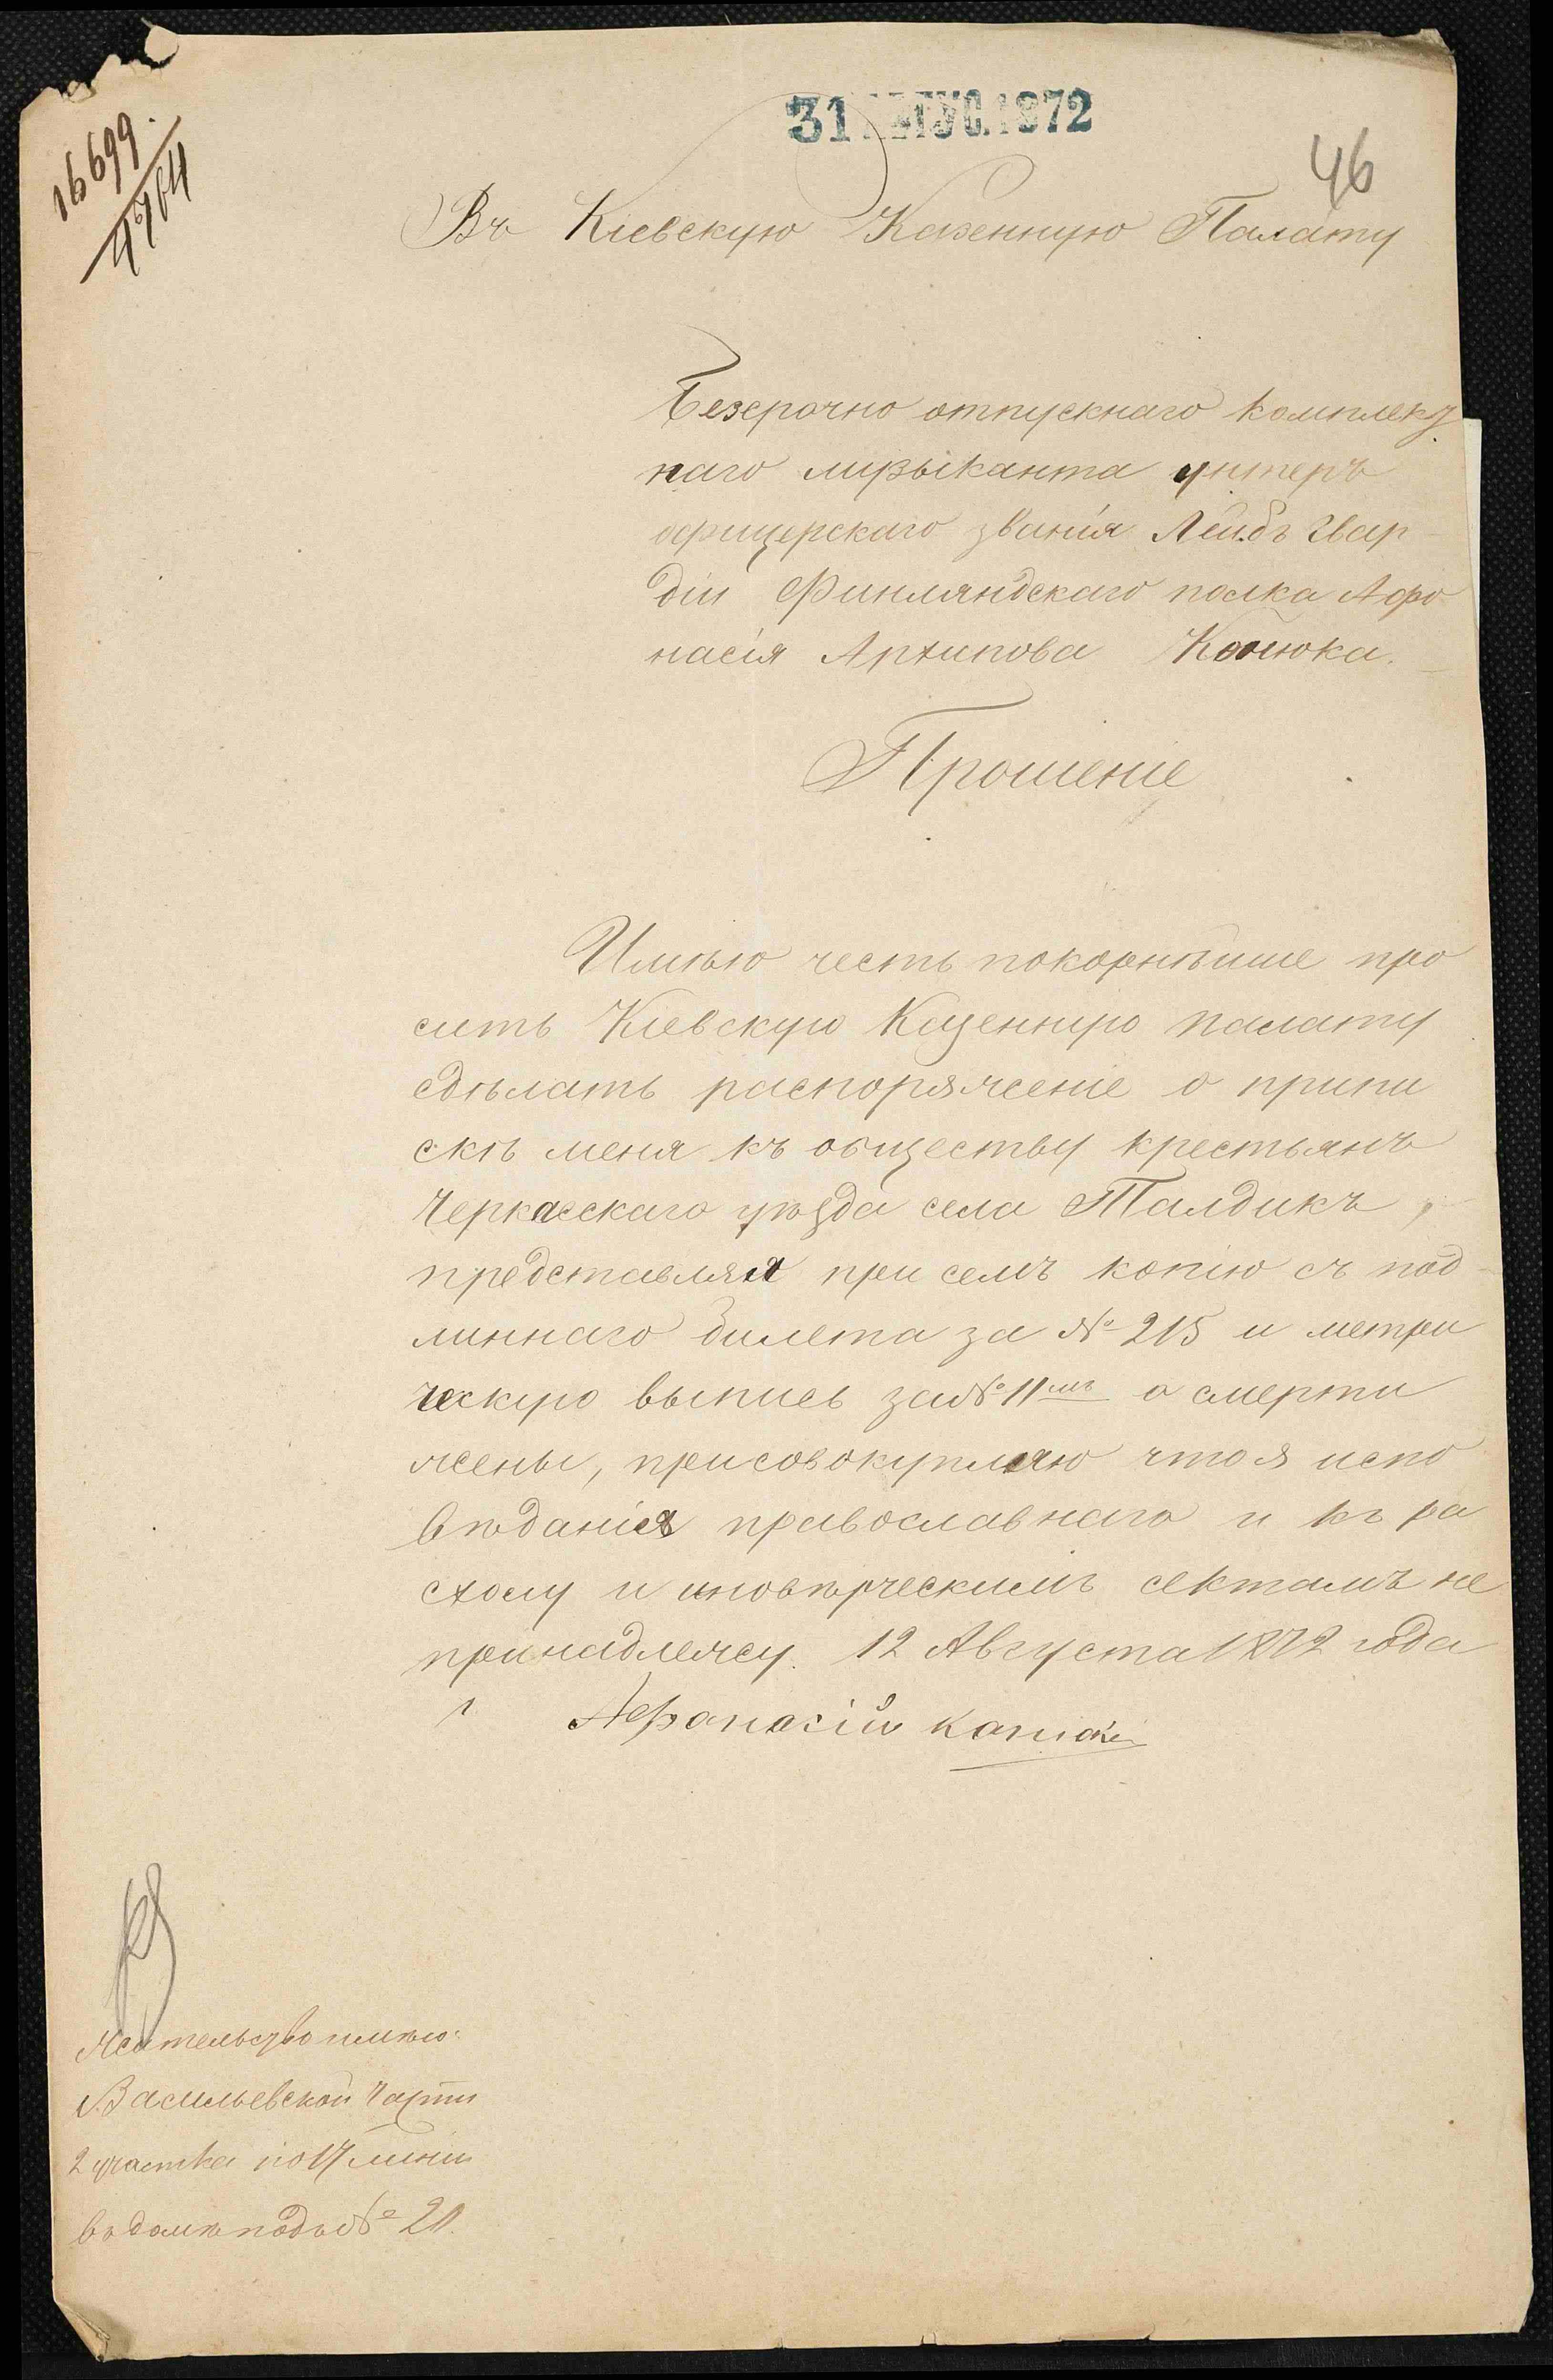 16699.
4764
31 АВГУС.1872
46
Въ Кіевскую Казенную Палату
Безсрочно отпускнаго комплект
наго музыканта унтеръ
офицерскаго званія Лейбъ гвар
діи Финляндскаго полка Афо
насія Архипова Копіюка.
Прошеніе
Имѣю честь покорнѣйше про
сить Кіевскую Казенную палату
сдѣлать распоряженіе о припи
скѣ меня къ обществу крестьянъ
Черкасскаго уѣзда села Талдикъ,
представляя при семъ копію съ под
линнаго билета за № 215 и метри
ческую выпись за № 11мъ о смерти
жены, присовокупляю что я испо
вѣданія православнаго и къ ра
сколу и иновѣрческимъ сектамъ не
принадлежу. 12 Августа 1872 года
Афанасій
Жительство имѣю:
Васильевской части
2 участка по 17 линіи
въ домѣ подъ № 20.